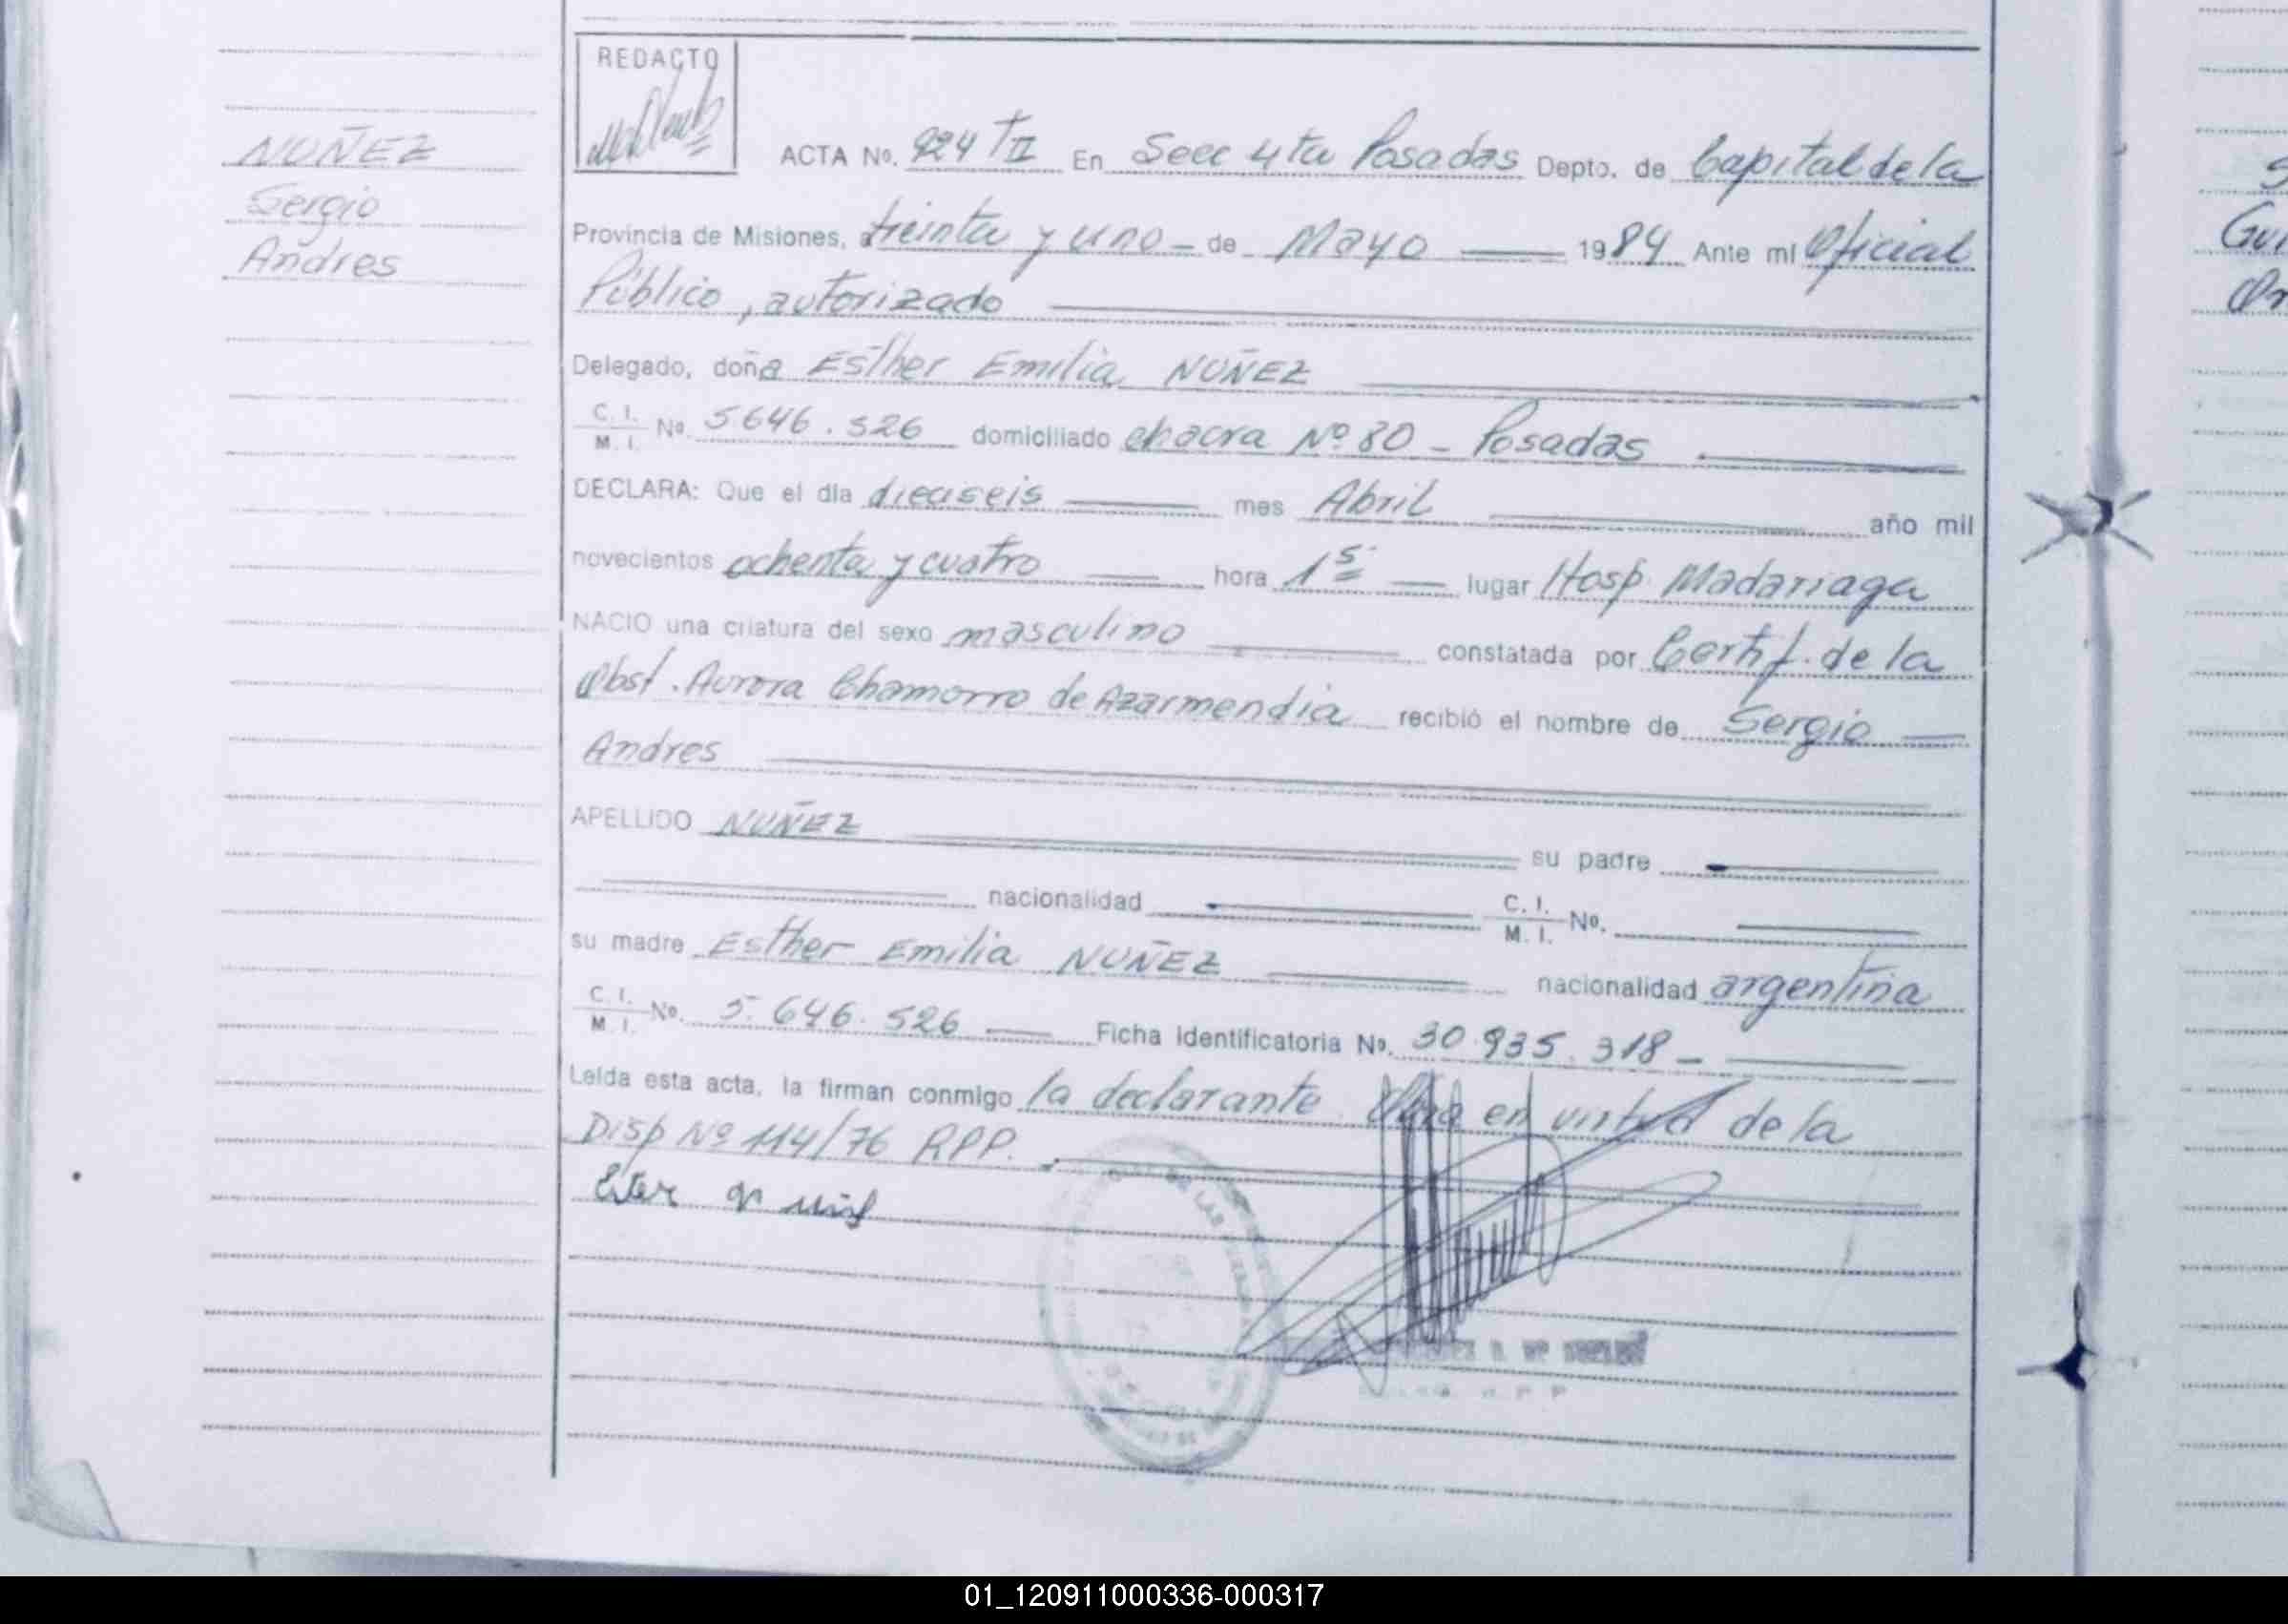 REDACTO
NUÑEZ
Sergio
Andres
ACTA No. 924 TII En Secc 4ta Posadas Depto. de Capital de la
Provincia de Misiones, treinta y uno - de Mayo 1984 Ante mi Oficial
Público, autorizado
Delegado, doña Esther Emilia NUÑEZ
C. I.
M. I. No. 5.646.526 domiciliado chacra Nº 80 - Posadas
DECLARA: Que el día dieciseis mes Abril año mil
novecientos ochenta y cuatro hora 15 lugar Hosp Madariaga
NACIO una criatura del sexo masculino constatada por Certif. de la
Obst. Aurora Chamorro de Azarmendia recibió el nombre de Sergio
Andres
APELLIDO NUÑEZ su padre
nacionalidad C. I.
M. I. No.
su madre Esther Emilia NUÑEZ nacionalidad argentina
C. I.
M. I. No. 5.646.526 Ficha Identificatoria No. 30.935.318 -
Leída esta acta, la firman conmigo la declarante en virtud de la
Disp Nº 114/76 RPP.
01_120911000336-000317